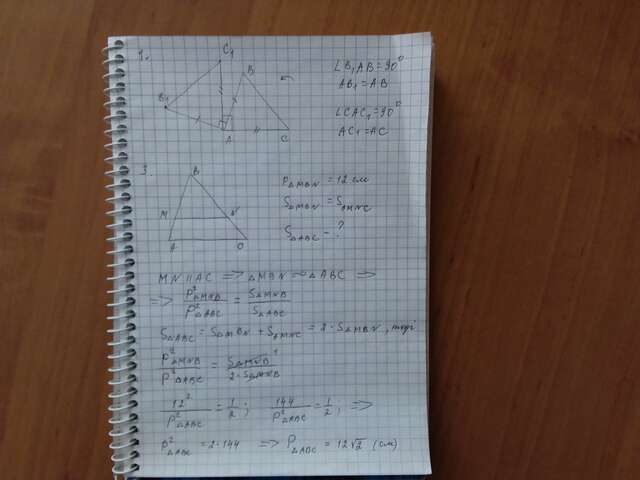 1.
C₁
B
B₁
A
C
∠B₁AB = 90°
AB₁ = AB
∠CAC₁ = 90°
AC₁ = AC
3.
B
M
N
A
C
P△MBN = 12 см
S△MBN = SAMNC
S△ABC - ?
MN || AC => △MBN ~ △ABC =>
=> P²△MNB / P²△ABC = S△MNB / S△ABC
S△ABC = S△MBN + SAMNC = 2 · S△MBN, тоді
P²△MNB / P²△ABC = S△MNB¹ / 2·S△MNB
12² / P²△ABC = 1/2; 144 / P²△ABC = 1/2; =>
P²△ABC = 2·144 => P△ABC = 12√2 (см)